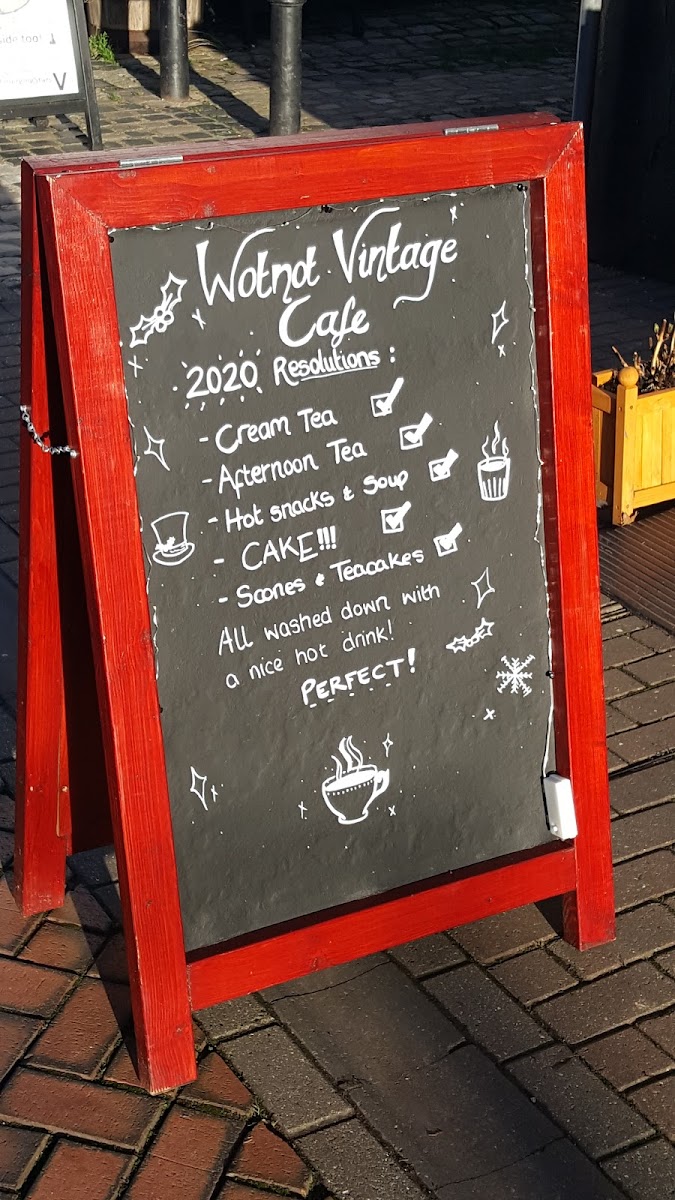 ide too!
Wotnot Vintage
Cafe
2020 Resolutions :
- Cream Tea ☑
- Afternoon Tea ☑
- Hot snacks & Soup ☑
- CAKE!!! ☑
- Scones & Teacakes ☑
All washed down with
a nice hot drink!
PERFECT!